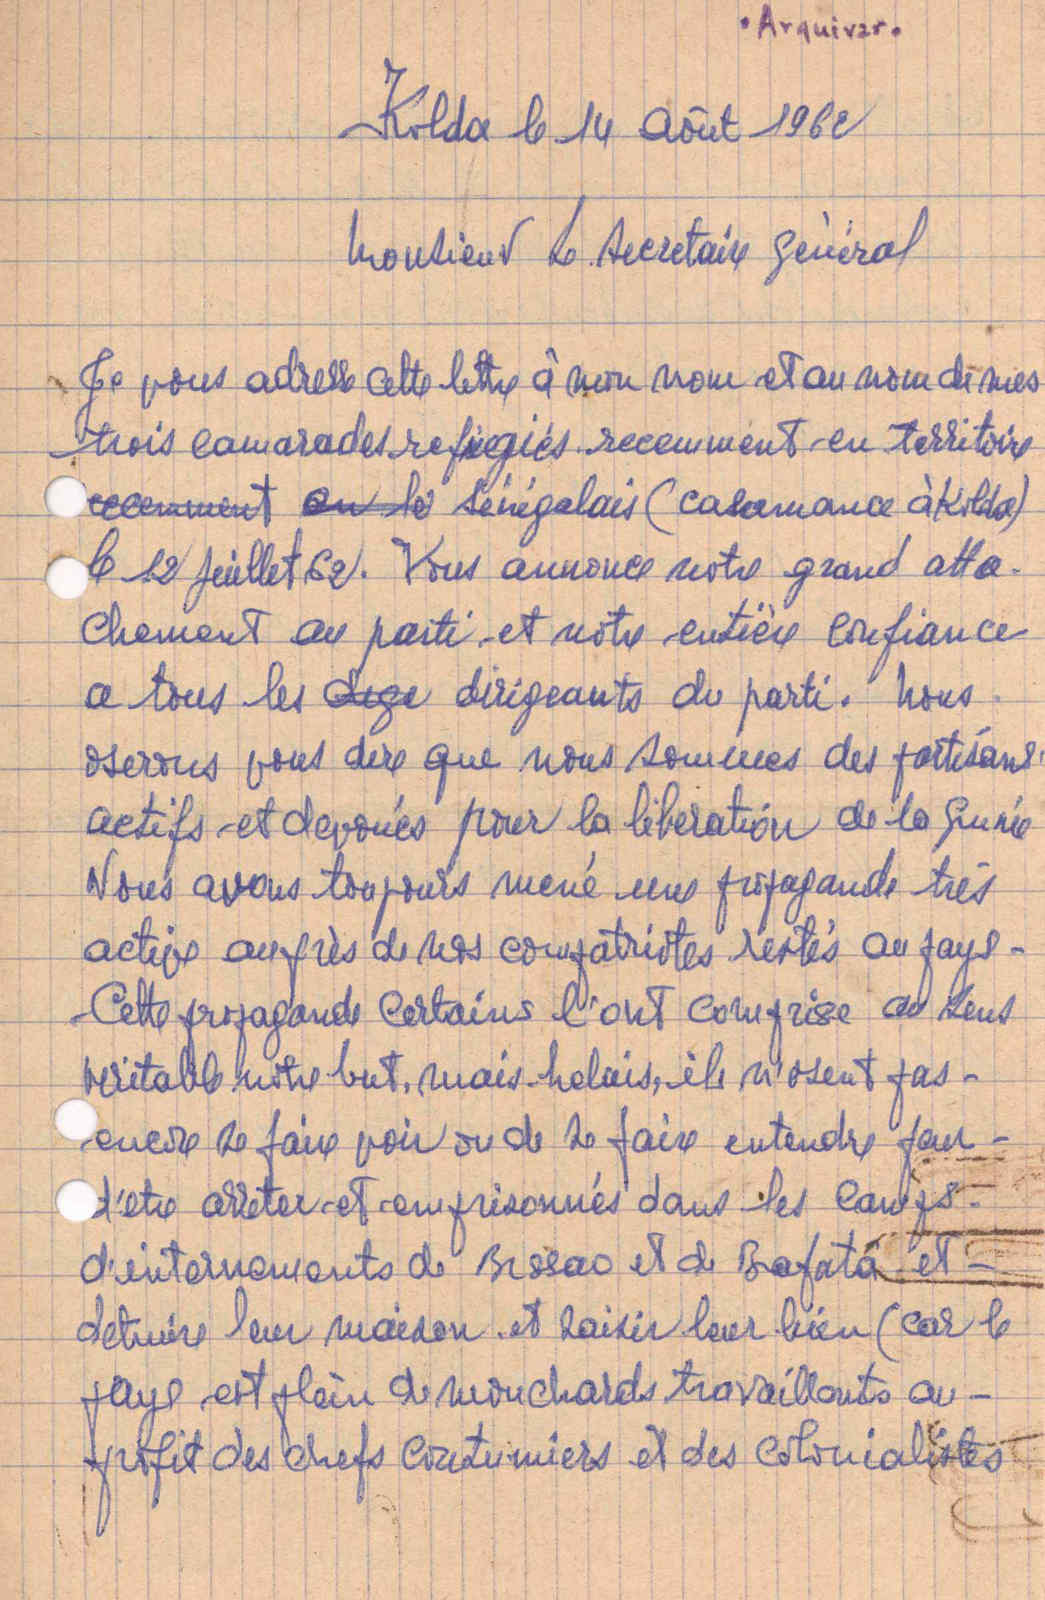 • Arquivar •
Kolda le 14 août 1962
Monsieur le secretaire général
Je vous adresse cette lettre à mon nom et au nom de mes
trois camarades refugiés recemment en territoire
recemment au le sénégalais (casamance à Kolda)
le 12 juillet 62. Vous annonce notre grand atta-
chement au parti et notre entière confiance
a tous les dirigeants du parti. Nous
oserons vous dire que nous sommes des partisans
actifs et devoués pour la libération de la Guinée
Nous avons toujours mené une propagande très
active auprès de nos compatriotes restés au pays -
Cette propagande certains l'ont comprise au sens
veritable notre but, mais helais, ils n'osent pas -
encore se faire voir ou de se faire entendre peur -
d'etre arreter et emprisonnés dans les camps -
d'internements de Bissao et de Bafatá et -
detruire leur maison et saisir leur bien (car le
pays est plein de mouchards travaillants au -
profit des chefs coutumiers et des colonialistes